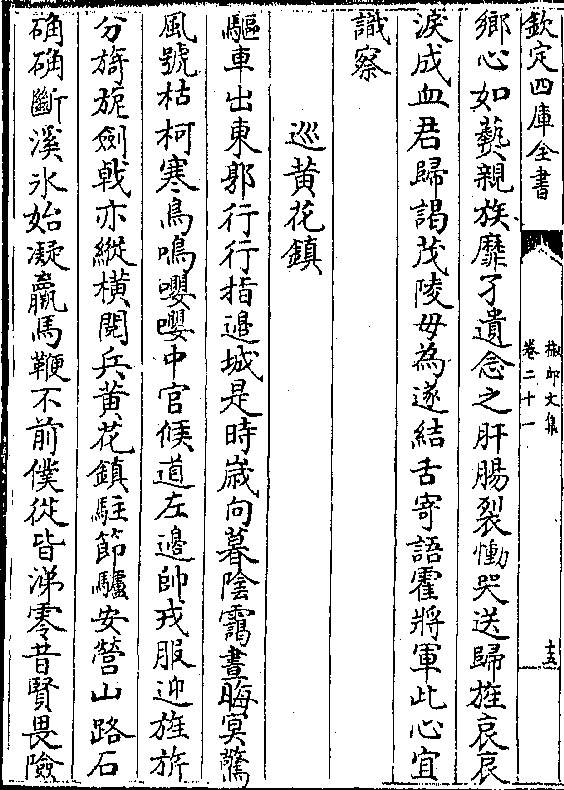 欽定四庫全書
椒邱文集
卷二十一
十五
鄉心如爇親族靡孑遺念之肝腸裂慟哭送歸旌哀哀
淚成血君歸謁茂陵毋為遂結舌寄語霍將軍此心宜
識察
巡黄花鎮
驅車出東郭行行指邉城是時嵗向暮陰靄晝晦冥驚
風號枯柯寒鳥鳴嚶嚶中官候道左邉帥戎服迎旌旂
分旖旎劍戟亦縱横閲兵黄花鎮駐節驢安營山路石
确确斷溪氷始凝羸馬鞭不前僕從皆涕零昔賢畏險